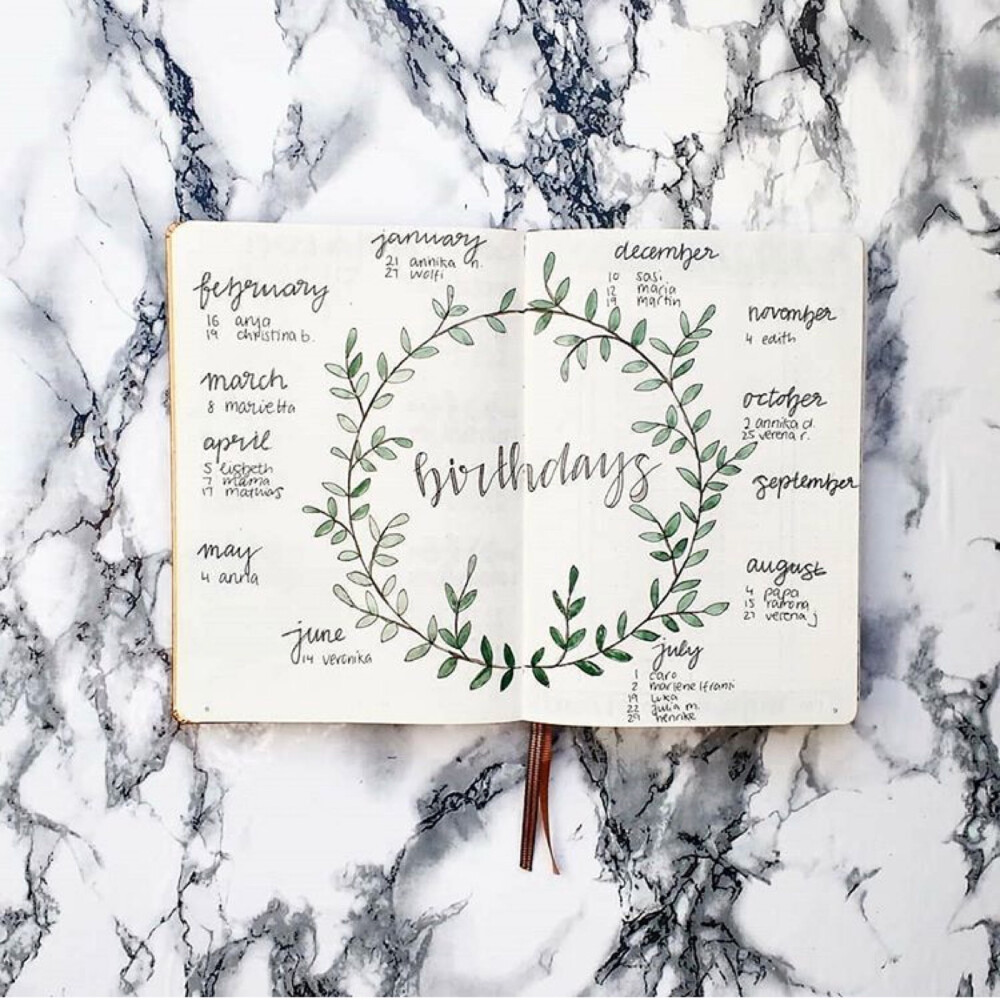 january
21 annika h.
27 wolfi
february
16 anja
19 christina b.
march
8 marietta
april
5 lisbeth
7 mama
17 mathias
may
4 anna
june
14 veronika
birthdays
december
10 sasi
12 maria
19 martin
november
4 edith
october
2 annika d.
25 verena r.
september
august
4 papa
15 ramona
27 verena j
july
1 caro
2 marlene
19 luka
22 julia m.
29 henrike